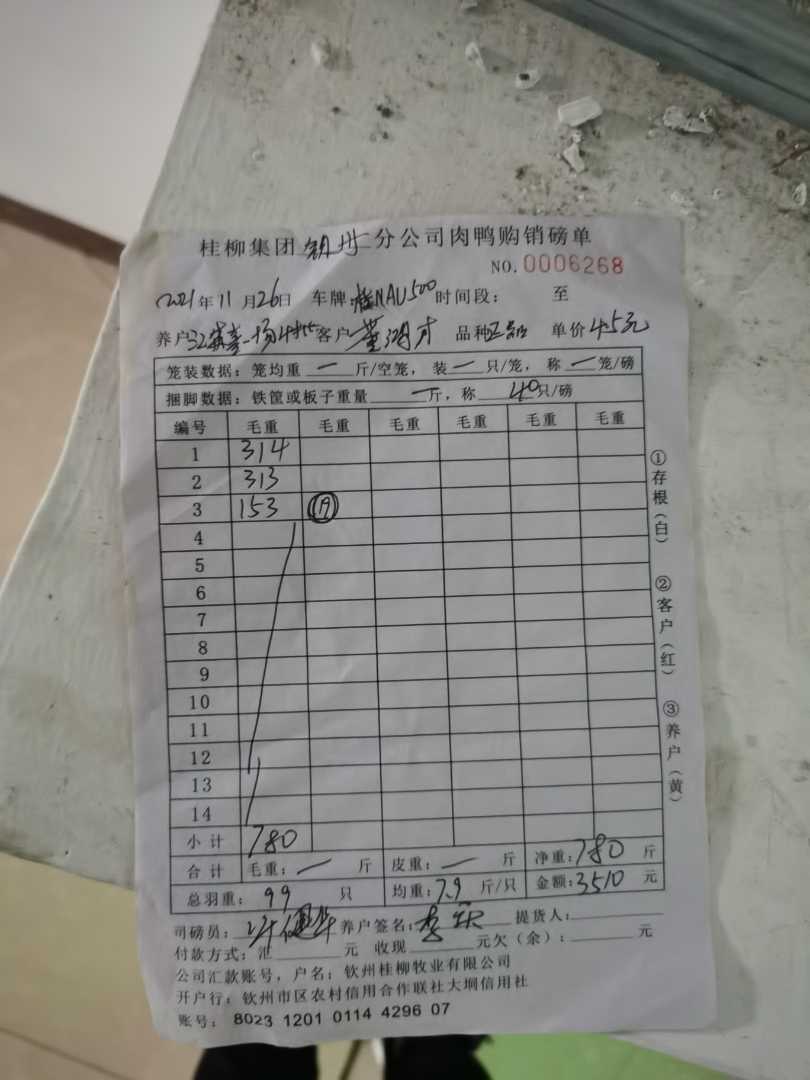 桂柳集团 钦州 分公司肉鸭购销磅单
NO. 0006268
2021年11月26日 车牌:桂NAU500 时间段: 至
养户 客户 董湖才 品种正品 单价4.5元
笼装数据: 笼均重 一 斤/空笼, 装 一 只/笼, 称 一 笼/磅
捆脚数据: 铁筐或板子重量 一 斤, 称 40只/磅
编号 毛重 毛重 毛重 毛重 毛重 毛重
1 314
2 313
3 153 (19)
4
5
6
7
8
9
10
11
12
13
14
小计 780
合计 毛重: 一 斤 皮重: 一 斤 净重:780 斤
总羽重: 99 只 均重:7.9 斤/只 金额:3510 元
司磅员: 养户签名: 提货人:
付款方式: 汇 元 收现 元欠(余): 元
公司汇款账号, 户名: 钦州桂柳牧业有限公司
开户行: 钦州市区农村信用合作联社大垌信用社
账号: 8023 1201 0114 4296 07
①存根(白) ②客户(红) ③养户(黄)